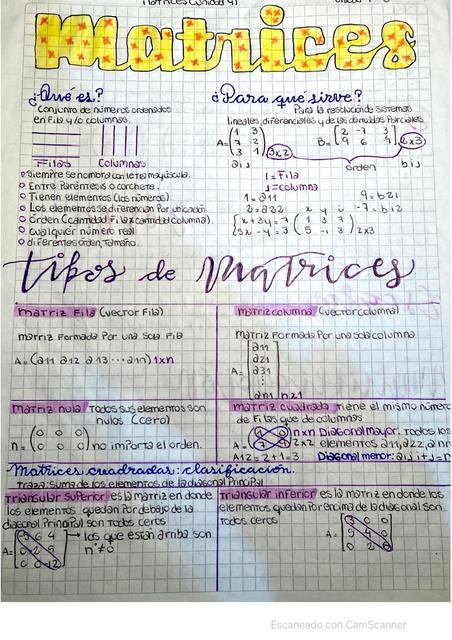 Matrices
¿Qué es?
Conjunto de números ordenados
en Fila y/o columnas.
Filas columnas
Siempre se nombra con letra mayúscula.
Entre Paréntesis o corchete.
Tienen elementos (los números)
Los elementos se diferencian Por ubicación.
Orden (cantidad Fila x cantidad columna).
cualquier número real
diferentes orden, Tamaño.
¿Para qué sirve?
Para la resolución de sistemas
lineales, diferenciales y de las derivadas Parciales
A= (1 3
7 2
3 1) 3x2
aij
B= [2 -7 3
9 6 9] 2x3
orden bij
i=Fila
j=columna
1=a11 9=b21
2=a22 -7=b12
x y i
{x+3y=7 (1 3 7
5x-y=3 5 -1 3) 2x3
Tipos de Matrices
matriz Fila (vector Fila)
matriz Formada Por una sola Fila
A=(a11 a12 a13 ... a1n) 1xn
matriz columna (vector columna)
matriz Formada Por una sola columna
A= [a11
a21
a31
⋮
an1] nx1
matriz nula Todos sus elementos son
nulos (cero)
n= (0 0 0
0 0 0) no importa el orden.
matriz cuadrada Tiene el mismo número
de Filas que de columnas
A= nxn Diagonal mayor: Todos los
2x2 elementos a11, a22, ann
A12=2+1=3 Diagonal menor: aij i+j=n
Matrices cuadradas: clasificación.
Traza: suma de los elementos de la diagonal Principal
Triangular superior es la matriz en donde
los elementos quedan Por debajo de la
diagonal Principal son Todos ceros
A= → los que están arriba son
n°≠0
Triangular inferior es la matriz en donde los
elementos quedan Por encima de la diagonal son
Todos ceros
A= [3 0 0
5 4 0
0 2 6]
Escaneado con CamScanner